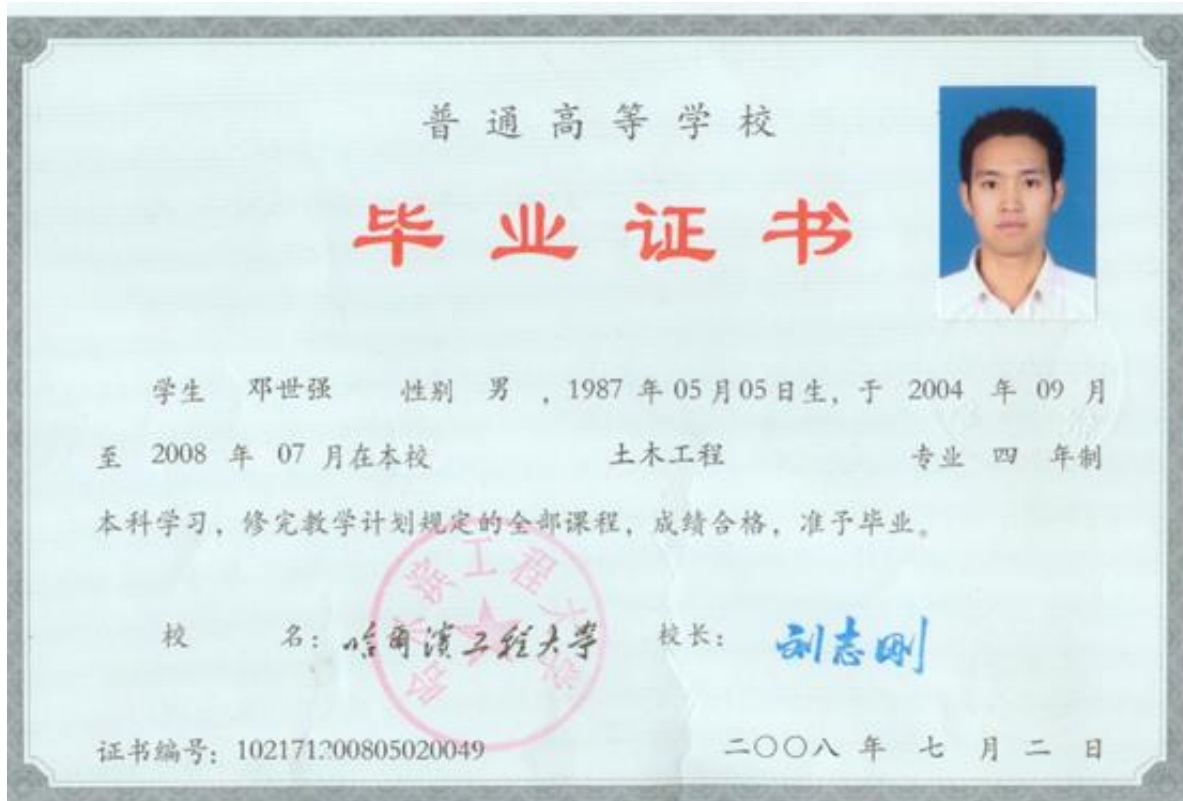 普通高等学校
毕业证书
学生 邓世强 性别 男 , 1987 年 05 月 05 日生, 于 2004 年 09 月
至 2008 年 07 月在本校 土木工程 专业 四 年制
本科学习, 修完教学计划规定的全部课程, 成绩合格, 准予毕业。
校 名: 哈尔滨工程大学 校长: 刘志刚
哈尔滨工程大学
证书编号: 二〇〇八 年 七 月 二 日